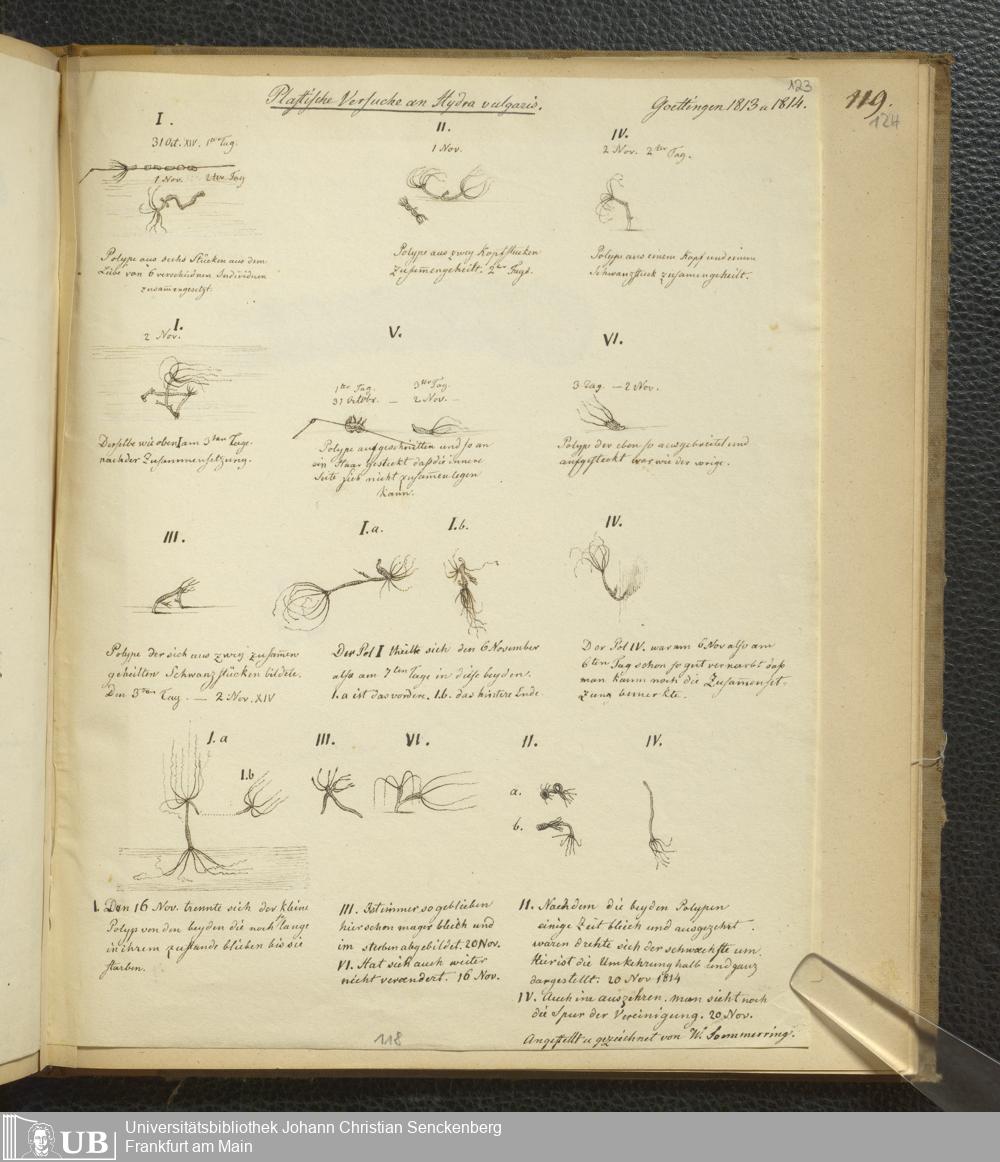 Plastische Versuche an Hydra vulgaris.
Goettingen 1813 u 1814.
123
119.
124
I.
31 Oct. XIV. 1ter Tag.
1 Nov. 2ter Tag
Polype aus sechs Stücken aus dem
Leibe von 6 verschiednen Individuen
zusam̄engesetzt.
II.
1 Nov.
Polype aus zwey Kopfstücken
zusam̄engeheilt. 2ter Tag.
IV.
2 Nov. 2ter Tag.
Polype aus einem Kopf und einem
Schwanzstück zusamengeheilt.
I.
2 Nov.
Derselbe wie oben I am 3ten Tage
nach der Zusammensetzung.
V.
1ter Tag. 3ter Tag.
31 Octbr. — 2 Nov. —
Polype aufgeschnitten und so an
ein Haar gesteckt daß die innere
Seite sich nicht zusam̄enlegen
kann.
VI.
3 Tag. — 2 Nov.
Polyp der eben so ausgebreitet und
aufgesteckt war wie der vorige.
III.
Polype der sich aus zwey zusam̄en
geheilten Schwanzstücken bildete.
Den 3ten Tag. — 2 Nov. XIV
I.a. I.b.
Der Pol I theilte sich den 6 November
also am 7ten Tage in diese beyden.
I.a ist das vordere. I.b. das hintere Ende.
IV.
Der Pol IV. war am 6 Nov also am
6ten Tag schon so gut vernarbt daß
man kaum noch die Zusam̄enset-
zung bemerkte.
I.a
I.b
I. Den 16 Nov. trennte sich der kleine
Polyp von den beyden die noch lange
in ihrem zustande blieben bis sie
starben.
III. VI.
III. Ist immer so geblieben
hier schon mager bleich und
im sterben abgebildet. 20 Nov.
VI. Hat sich auch weiter
nicht veraendert. 16 Nov.
II. IV.
a.
b.
II. Nachdem die beyden Polypen
einige Zeit bleich und ausgezehrt
waren drehte sich der schwaechste um.
Hier ist die Umkehrung halb und ganz
dargestellt: 20 Nov 1814
IV. Auch im auszehren. man sieht noch
die Spur der Vereinigung. 20 Nov.
Angestellt u gezeichnet von W. Soemmerring.
118
UB
Universitätsbibliothek Johann Christian Senckenberg
Frankfurt am Main